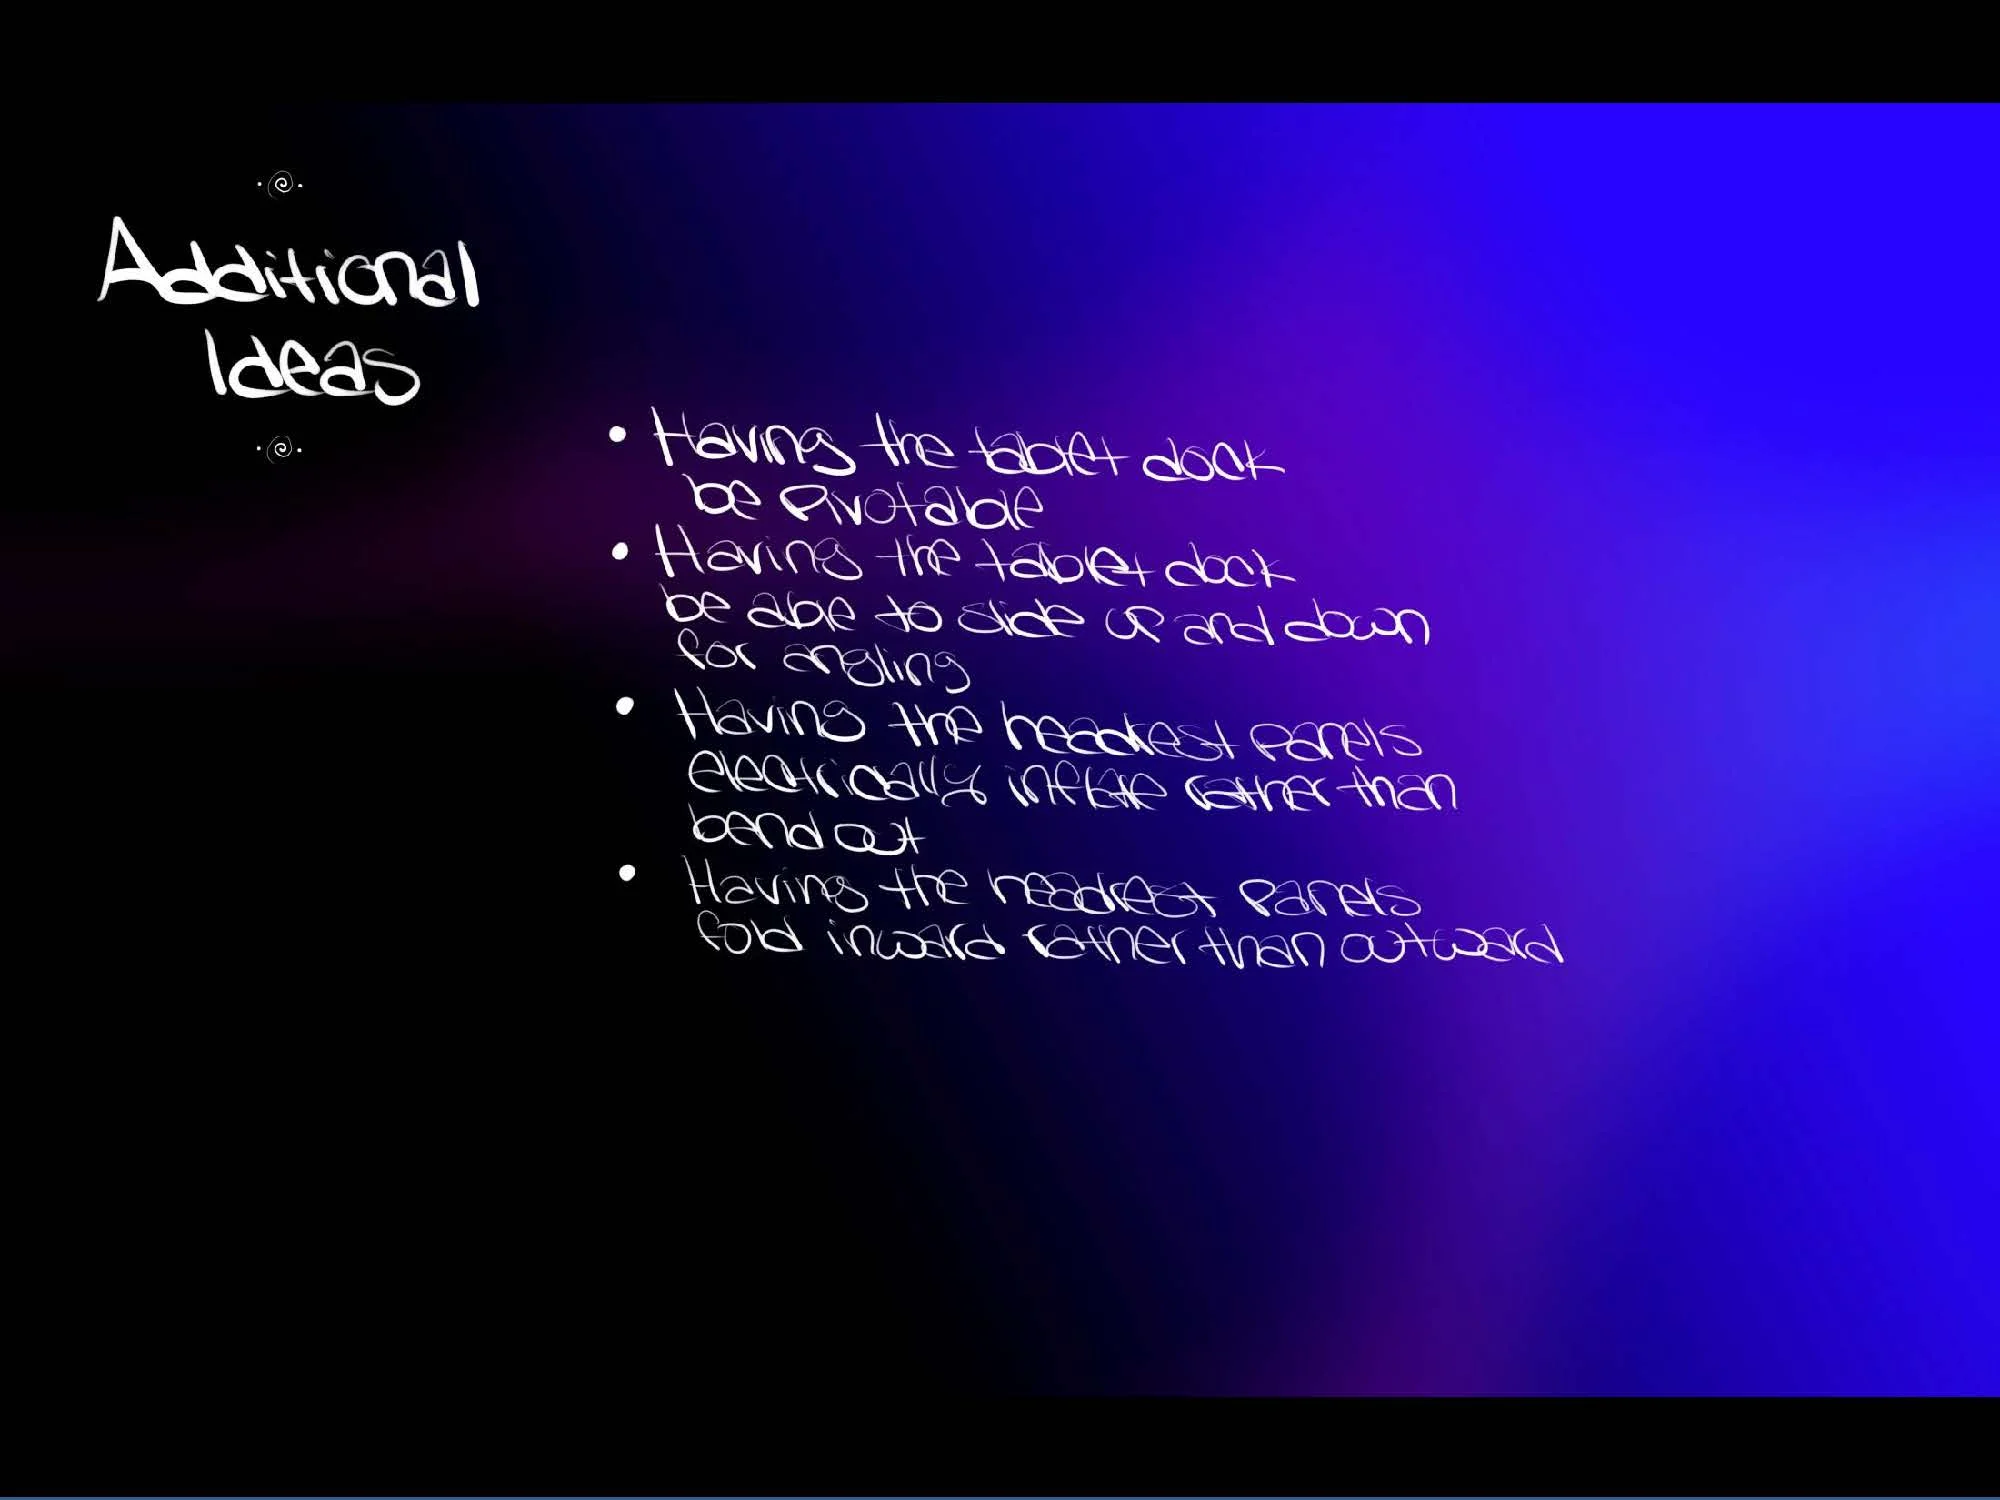 Additional
Ideas
• Having the tablet dock
be pivotable
• Having the tablet dock
be able to slide up and down
for angling
• Having the headrest panels
electrically inflate rather than
bend out
• Having the headrest panels
fold inward rather than outward